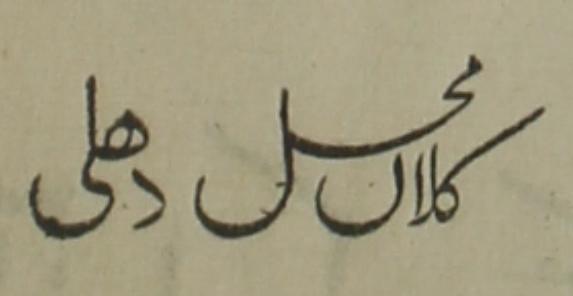 کلاں محل دھلی